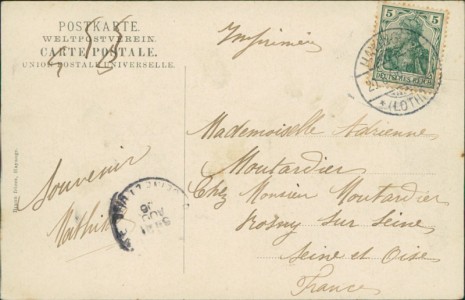 POSTKARTE.
WELTPOSTVEREIN.
CARTE POSTALE.
UNION POSTALE UNIVERSELLE.
Imprimés
5 5
DEUTSCHES REICH
Mademoiselle Adrienne
Moutardier
Chez Monsieur Moutardier
Rosny sur Seine
Seine et Oise
France
Souvenir
Mathilde